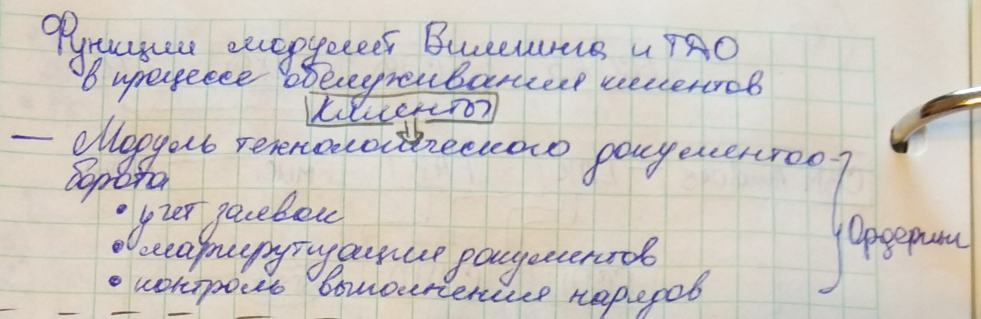 Функции модулей Биллинга и ТДО
в процессе обслуживания клиентов
Клиенты
— Модуль технологического документоо-
борота
• учет заявок
• маршрутизация документов
• контроль выполнения нарядов
Ордеринг